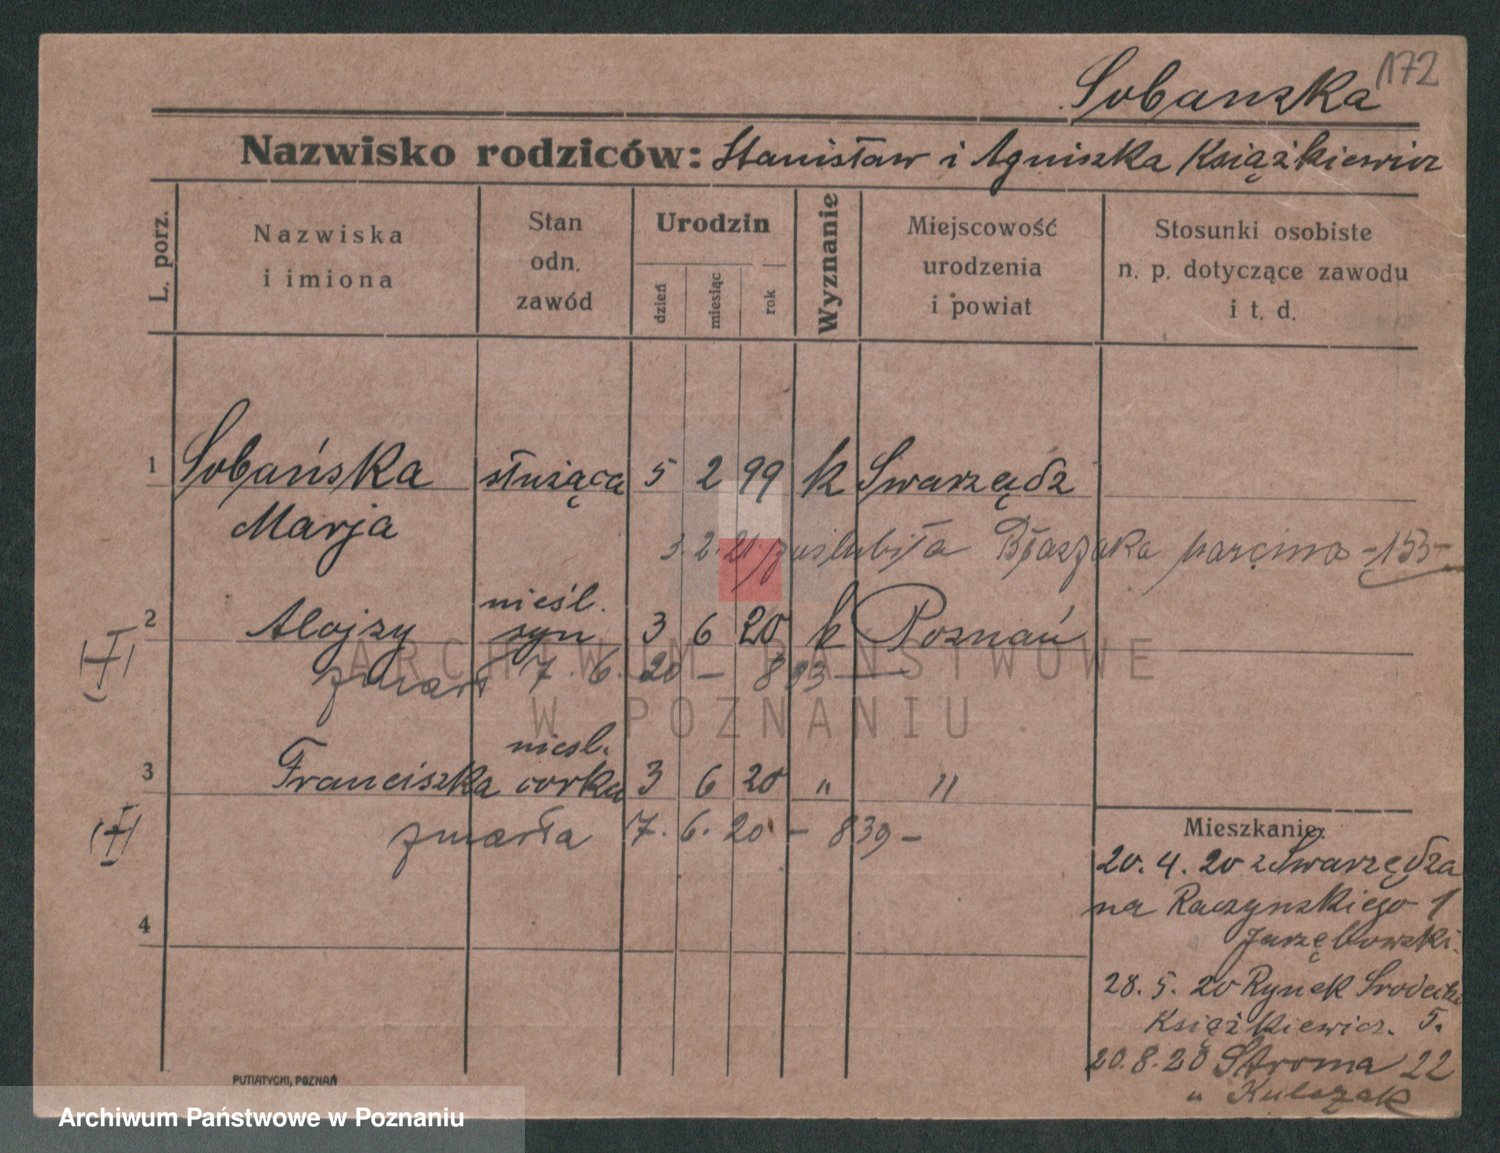 172
Sobanska
Nazwisko rodziców: Stanisław i Agniszka Książkiewicz
L. porz.
Nazwiska i imiona
Stan odn. zawód
Urodzin
dzień miesiąc rok
Wyznanie
Miejscowość urodzenia i powiat
Stosunki osobiste n. p. dotyczące zawodu i t. d.
1 Sobańska służąca 5 2 99 k Swarzędz
Marja
3. 2. 21 zaślubiła Błaszaka Marcina -153-
nieśl.
2 Alojzy syn 3 6 20 k Poznań
zmarł 7. 6. 20 – 833 –
niesl.
3 Franciszka corka 3 6 20 " "
zmarła 7. 6. 20 – 839 –
4
Mieszkanie:
20. 4. 20 z Swarzędza
na Raczynskiego 1
Jarzębowski.
28. 5. 20 Rynek Srodecki
Książkiewicz. 5.
20. 8. 20 Stroma 22
u Kulczak
PUTIATYCKI, POZNAŃ
ARCHIWUM PAŃSTWOWE
W POZNANIU
Archiwum Państwowe w Poznaniu